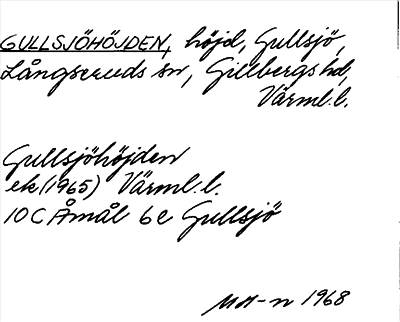 GULLSJÖHÖJDEN, höjd, Gullsjö,
Långseruds sn, Gillbergs hd,
Värml. l.
Gullsjöhöjden
ek (1965) Värml. l.
10 C Åmål 6e Gullsjö
MM-n 1968